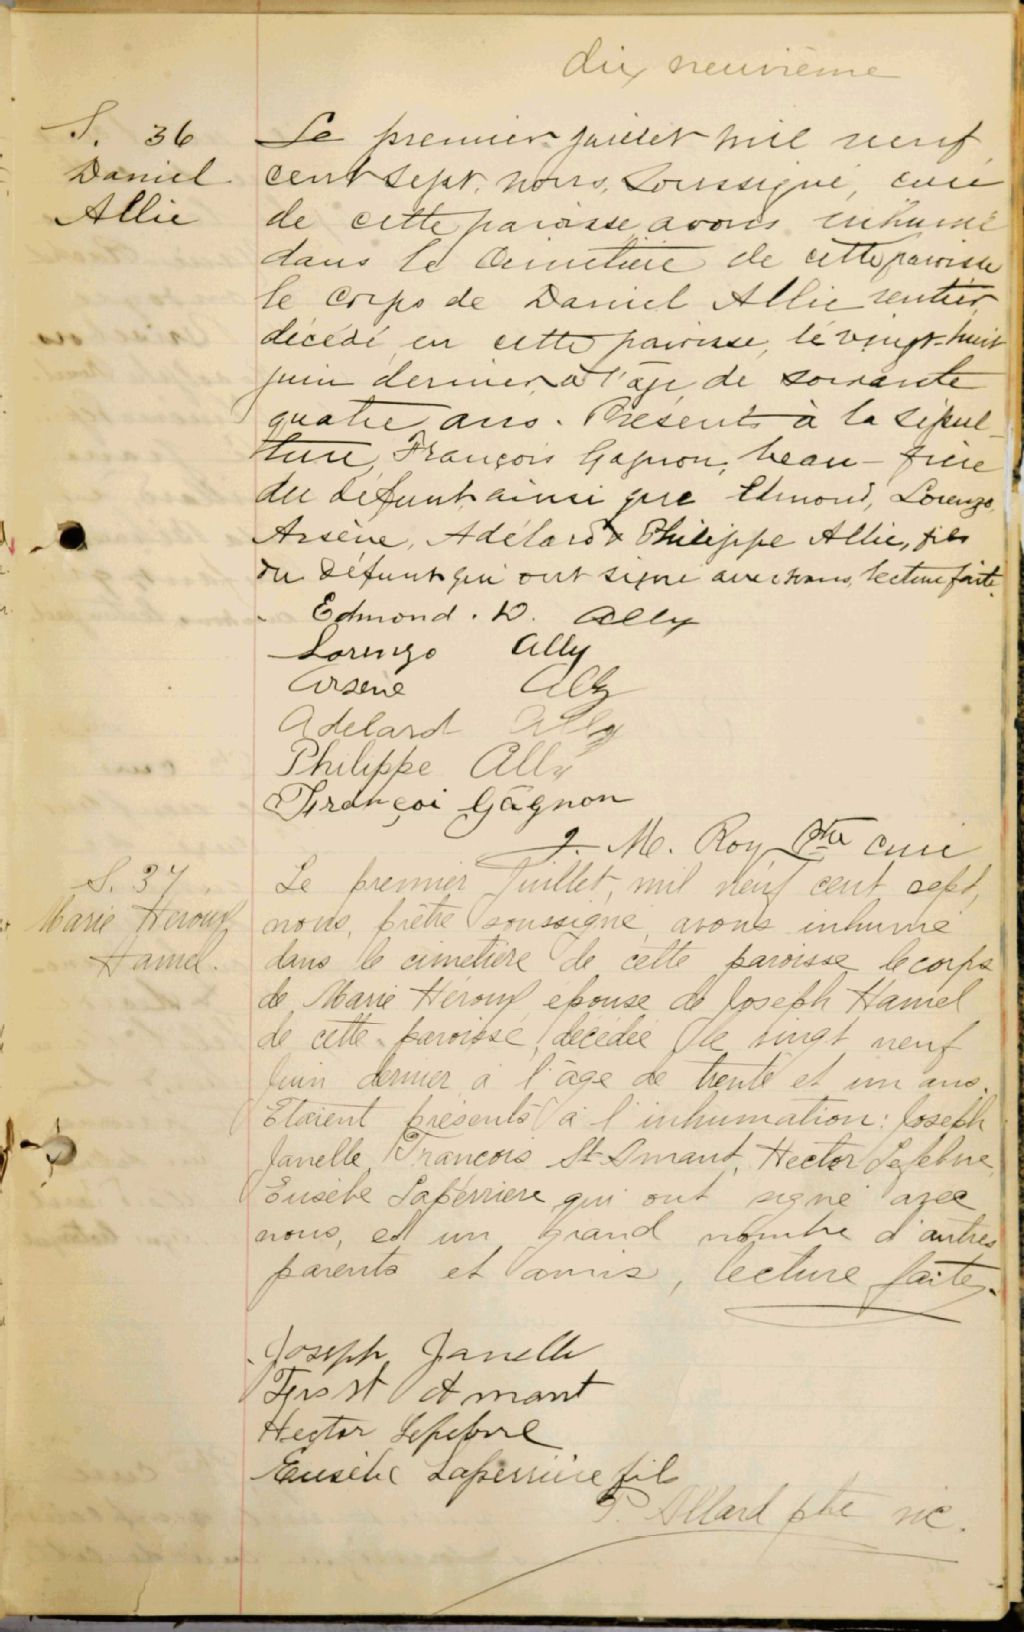 dix neuvième
S. 36
Daniel
Allie
Le premier juillet mil neuf
cent sept, nous, soussigné, curé
de cette paroisse avons inhumé
dans le cimetière de cette paroisse
le corps de Daniel Allie rentier
décédé en cette paroisse, le vingt-huit
juin dernier à l'âge de soixante
quatre ans. Présents à la sépul-
ture, François Gagnon, beau-frère
du défunt ainsi que Edmond, Lorenzo,
Arsène, Adélard & Philippe Allie, fils
du défunt qui ont signé avec nous, lecture faite.
Edmond. D. Ally
Lorenzo Ally
Arsène Ally
Adelard Ally
Philippe Ally
Françoi Gagnon
J. M. Roy Ptre curé
S. 37
Marie Heroux
Hamel.
Le premier Juillet, mil neuf cent sept,
nous, prêtre soussigné, avons inhumé
dans le cimetière de cette paroisse le corps
de Marie Heroux, épouse de Joseph Hamel
de cette paroisse, décédée le vingt neuf
Juin dernier à l'âge de trente et un ans.
Etaient présents à l'inhumation: Joseph
Janelle, François St-Amant, Hector Lefebvre,
Eusèbe Laperriere qui ont signé avec
nous, et un grand nombre d'autres
parents et amis, lecture faite.
Joseph Janelle
Frs St Amant
Hector Lefebvre
Eusèbe Laperrière fils
P. Allard ptre vic.